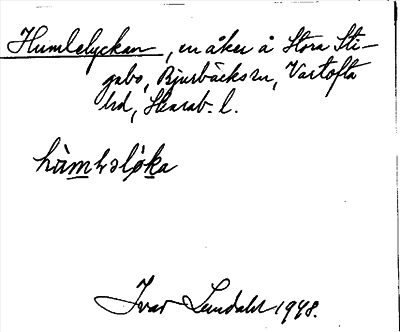 Humlelyckan, en åker å Stora Sti-
gabo, Bjurbäcks sn, Vartofta
hd, Skarab. l.
Ivar Lundahl 1948.